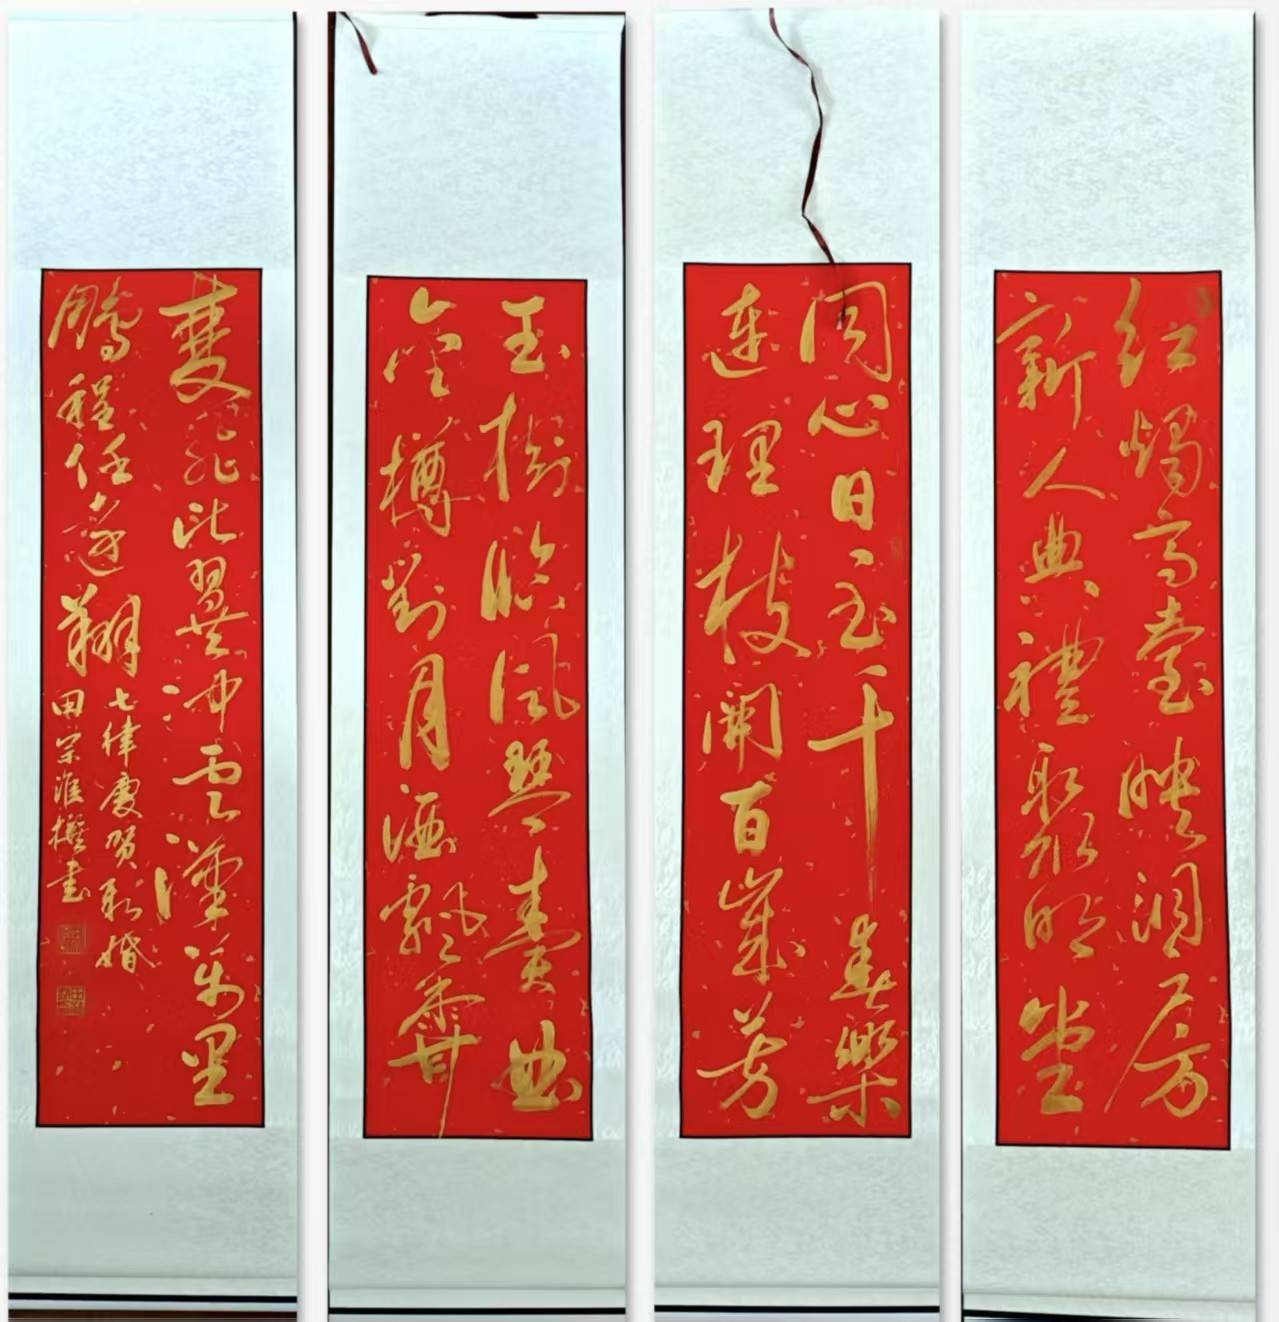 红烛高臺映洞房
新人典禮聚明堂
同心日日千春樂
連理枝開百歲芳
玉樹臨風琴奏曲
金樽對月酒飄香
雙飛比翼沖雲漢萬里
鵬程任遠翔
七律慶贺新婚
田宗淮撰書